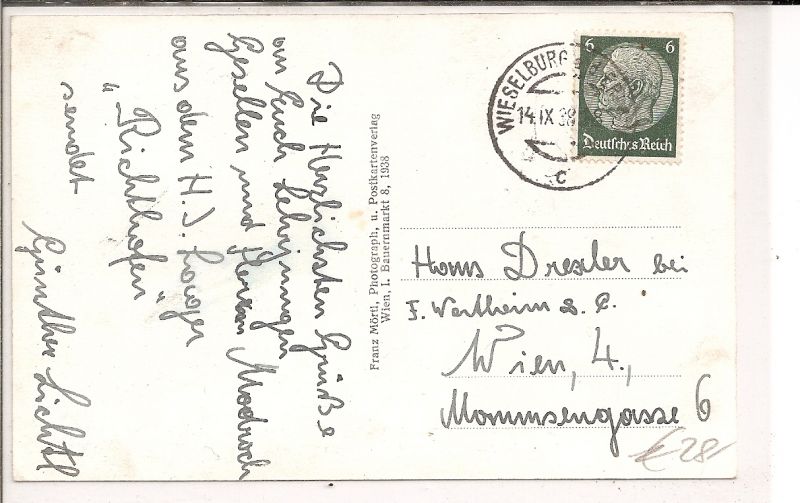 Die Herzlichsten Grüße
an Euch Lehrjungen
Gesellen und Herrn
aus dem H.J. Lager
"Richthofen"
sendet
Günther Lichtl
Franz Mörtl, Photograph, u. Postkartenverlag
Wien, I. Bauernmarkt 8, 1938
WIESELBURG
14.IX 38
c
6 6
Deutsches Reich
Hans Drexler bei
F. Wertheim & C.
Wien, 4.,
Mommsengasse 6
€ 28/